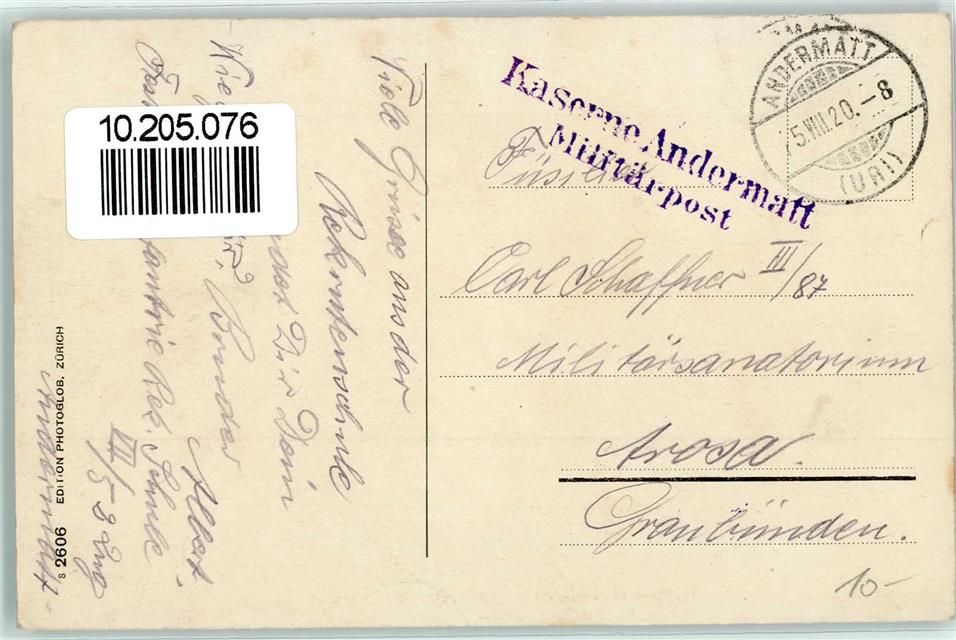 10.205.076
Viele Grüsse aus der
Rekrutenschule
sendet Dir Dein
Bruder
Albert
Infanterie Rek. Schule
III/5 3 Zug
Andermatt
S 2606 EDITION PHOTOGLOB, ZÜRICH
Kaserne Andermatt
Militärpost
ANDERMATT
5.VIII.20.-8
(URI)
Füsilier
Carl Schaffner III/87
Militärsanatorium
Arosa.
Graubünden.
10-